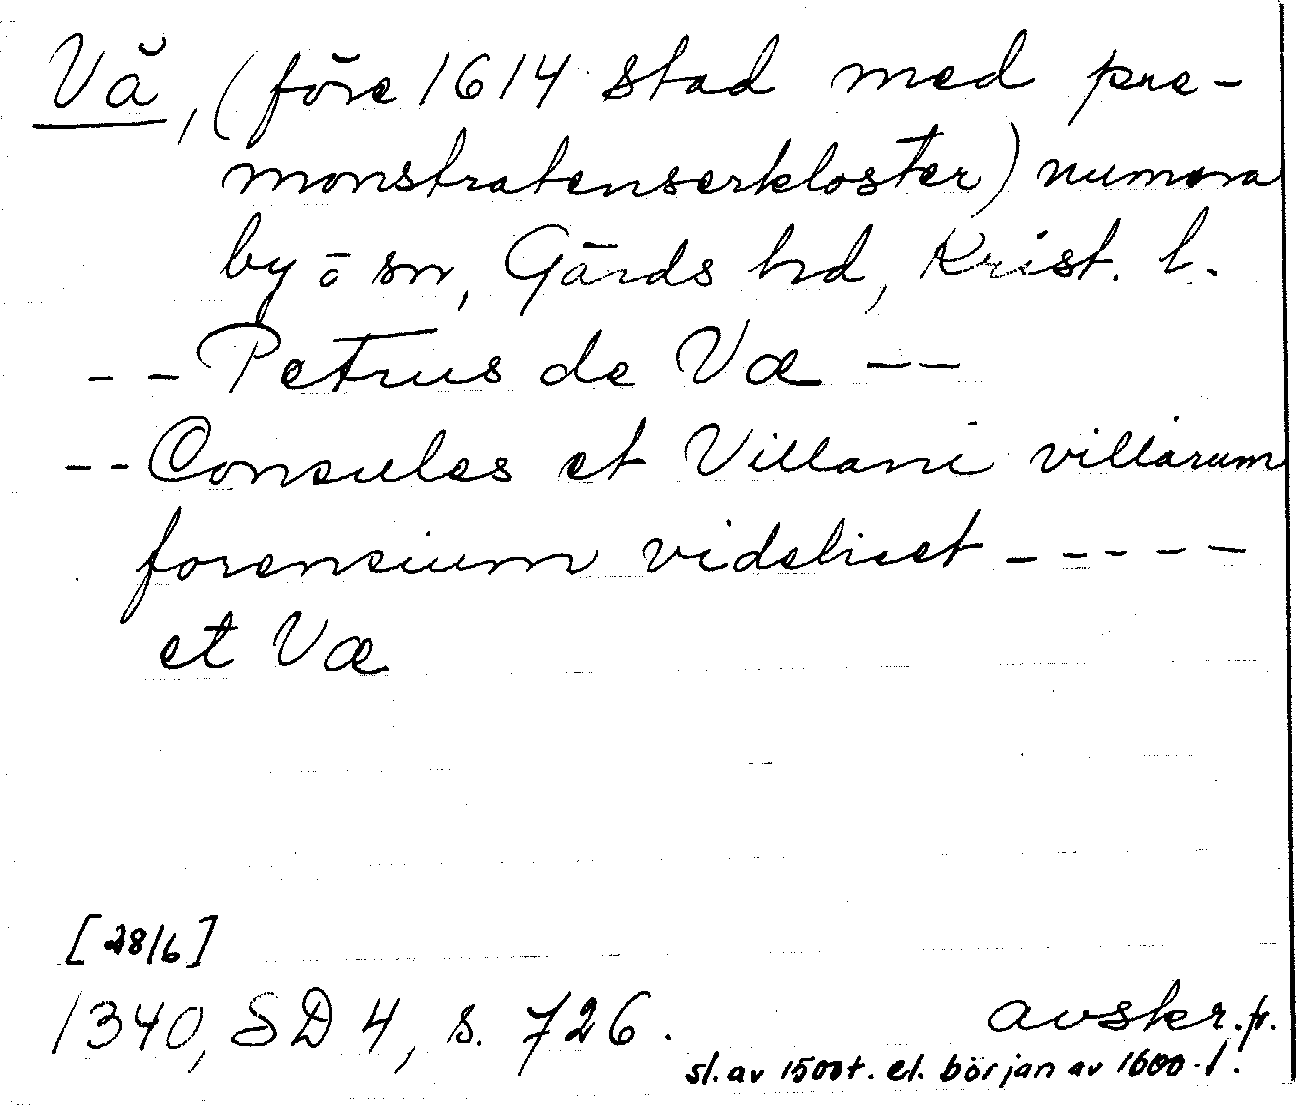 Vä, (före 1614 stad med pre-
monstratenserkloster) numera
by o sn, Gärds hd, Krist. l.
-- Petrus de Væ --
-- Consules et Villani villarum
forensium videlicet -----
et Væ
[28/6]
1340, SD 4, s. 726.
avskr. fr.
sl. av 1500t. el. början av 1600-t.